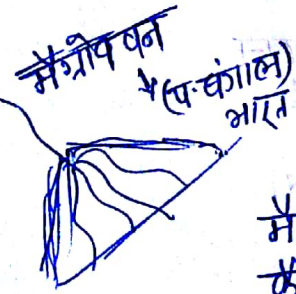 मैंग्रोव वन
(प. बंगाल)
भारत
मैं